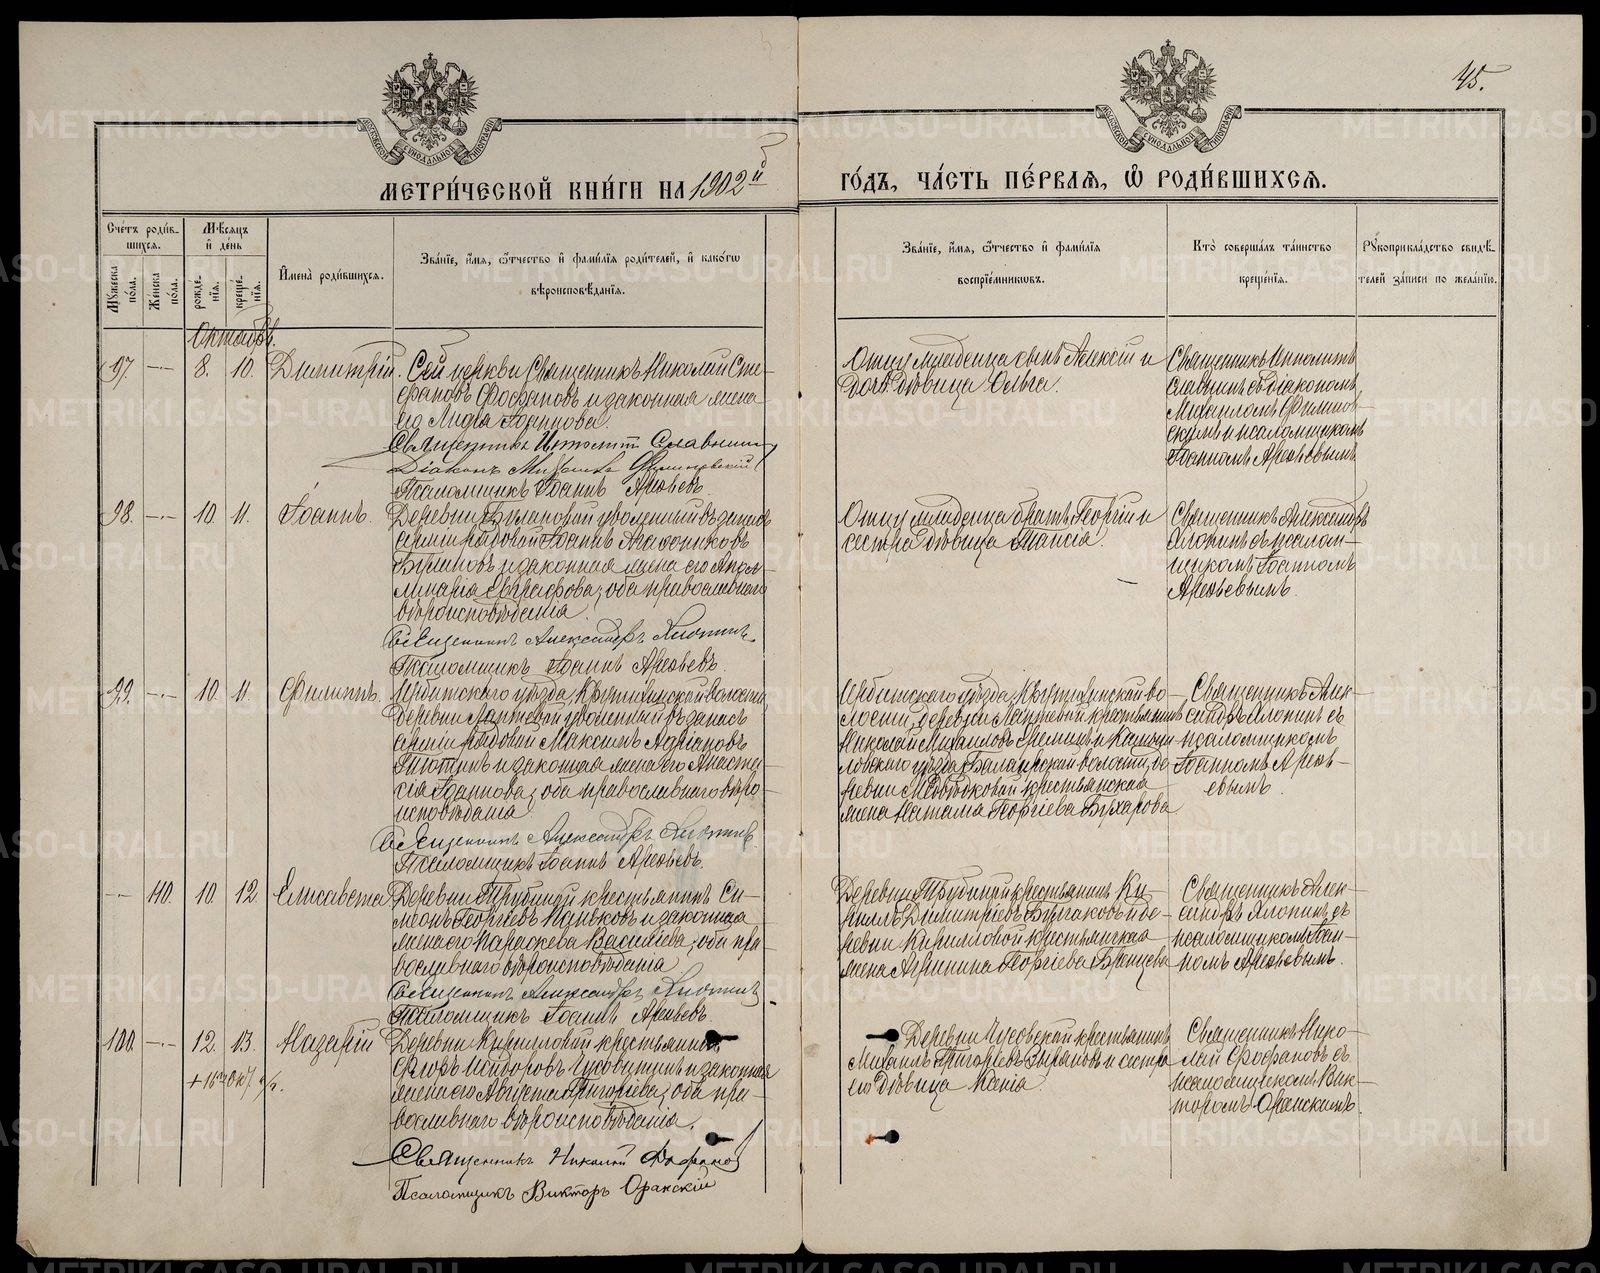 45.
МЕТРИ́ЧЕСКОЙ КНИ́ГИ НА 1902й
ГО́ДЪ, ЧА́СТЬ ПЕ́РВАЯ, Ѡ РОДИ́ВШИХСЯ.
Сче́тъ роди́в-
шихся.
Му́жеска по́ла.
Же́нска по́ла.
Мѣ́сяцъ и де́нь
рожде́-нія.
креще́-нія.
Имена̀ роди́вшихся.
Зва́ніе, и́мя, ѻ҆́тчество и фами́лія роди́телей, и како́гѡ
вѣроисповѣ́данія.
Зва́ніе, и́мя, ѻ҆́тчество и фами́лія
воспріе́мниковъ.
Кто̀ соверша́лъ та́инство
креще́нія.
Рꙋкоприкла́дство свидѣ́-
телей за́писи по жела́нію.
Октябрь.
97. — 8. 10. Димитрій.
Сей церкви Священникъ Николай Сте-
фановъ Фофановъ и законная жена
его Лидія Іоаннова.
Священникъ Ипполитъ Славнин
Діаконъ Михаилъ Филиповскій
Псаломщикъ Іоаннъ Арефьевъ.
Отцу младенца сынъ Алексій и
дочь дѣвица Ольга.
Священникъ Ипполитъ
Славнинъ съ діакономъ
Михаиломъ Филипов-
скимъ и псаломщикомъ
Іоанномъ Арефьевымъ.
98. — 10. 11. Іоаннъ.
Деревни Булановой уволенный въ запасъ
арміи рядовой Іоаннъ Агафониковъ
Булановъ и законная жена его Апол-
линарія Евграфова, оба православнаго
вѣроисповѣданія.
Священникъ Александръ Хлопинъ.
Псаломщикъ Іоаннъ Арефьевъ.
Отцу младенца братъ Георгій и
сестра дѣвица Таисія.
Священникъ Александръ
Хлопинъ съ псалом-
щикомъ Іоанномъ
Арефьевымъ.
99. — 10. 11. Филиппъ.
Ирбитскаго уѣзда, волости,
деревни Лаптевой уволенный въ запасъ
арміи рядовой Максимъ Адріановъ
и законная жена его Анаста-
сія Іоаннова, оба православнаго вѣро-
исповѣданія.
Священникъ Александръ Хлопинъ.
Псаломщикъ Іоаннъ Арефьевъ.
Ирбитскаго уѣзда, во-
лости, деревни Лаптевой крестьянинъ
Николай Михайловъ и Камыш-
ловскаго уѣзда, волости, де-
ревни крестьянская
жена Наталія Георгіева Бухарова.
Священникъ Алек-
сандръ Хлопинъ съ
псаломщикомъ
Іоанномъ Арефь-
евымъ.
— 40. 10. 12. Елисавета.
Деревни Трубиной крестьянинъ Си-
меонъ Георгіевъ Паньковъ и законная
жена его Параскева Василіева, оба пра-
вославнаго вѣроисповѣданія.
Священникъ Александръ Хлопинъ
Псаломщикъ Іоаннъ Арефьевъ.
Деревни Трубиной крестьянинъ Ки-
риллъ Димитріевъ Булгаковъ и де-
ревни Кирилловой крестьянская
жена Агрипина Георгіева
Священникъ Алек-
сандръ Хлопинъ съ
псаломщикомъ Іоан-
номъ Арефьевымъ.
100. — 12. 13. Назарій
+ 16го Окт.
Деревни Кирилловой крестьянинъ
Флоръ Исидоровъ Чусовитинъ и законная
жена его Августа Григоріева, оба пра-
вославнаго вѣроисповѣданія.
Священникъ Николай Фофановъ
Псаломщикъ Викторъ Оранскій
Деревни Чусовской крестьянинъ
Михаилъ Григорьевъ Зыряновъ и сестра
его дѣвица Ксенія.
Священникъ Нико-
лай Фофановъ съ
псаломщикомъ Вик-
торомъ Оранскимъ.